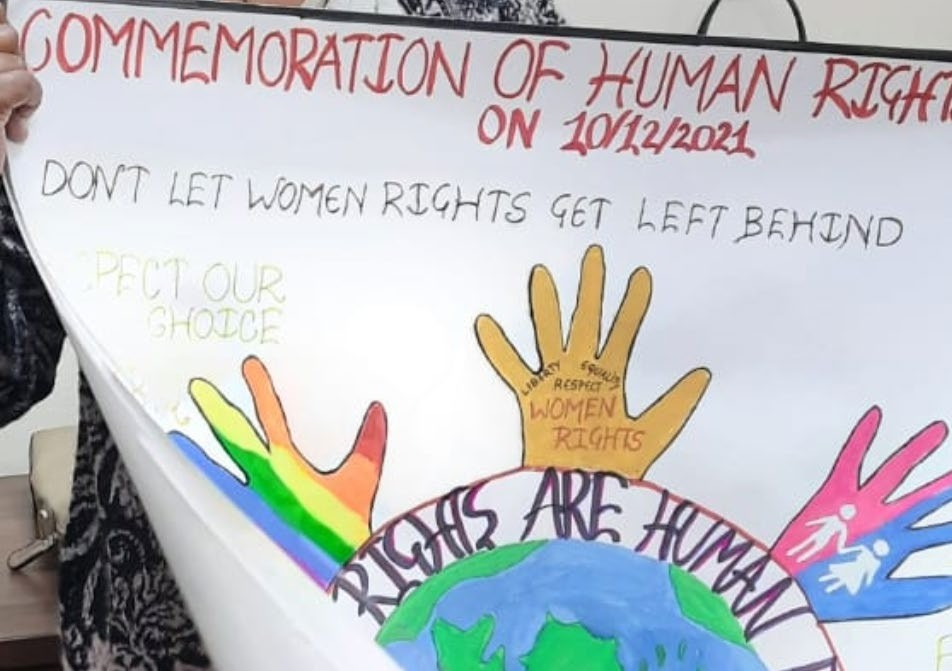 COMMEMORATION OF HUMAN RIGH
ON 10/12/2021
DON'T LET WOMEN RIGHTS GET LEFT BEHIND
PECT OUR
CHOICE
LIBERTY EQUALITY
RESPECT
WOMEN
RIGHTS
RIGHTS ARE HUMAN